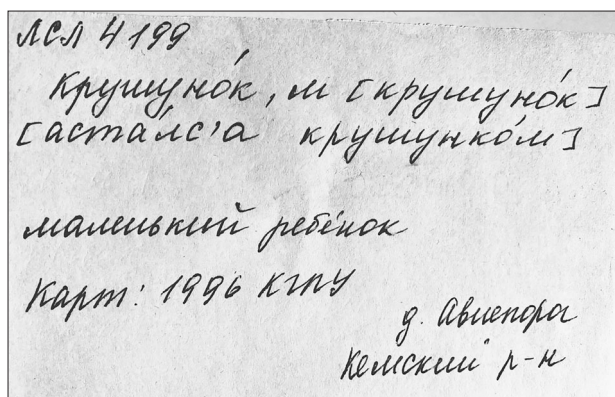 ЛСЛ 4 199
Крушуно́к, м [крушуно́к]
[аста́лс'а крушунко́м]
маленький ребёнок
Карт: 1996 КГПУ
д. Авнепорог
Кемский р-н